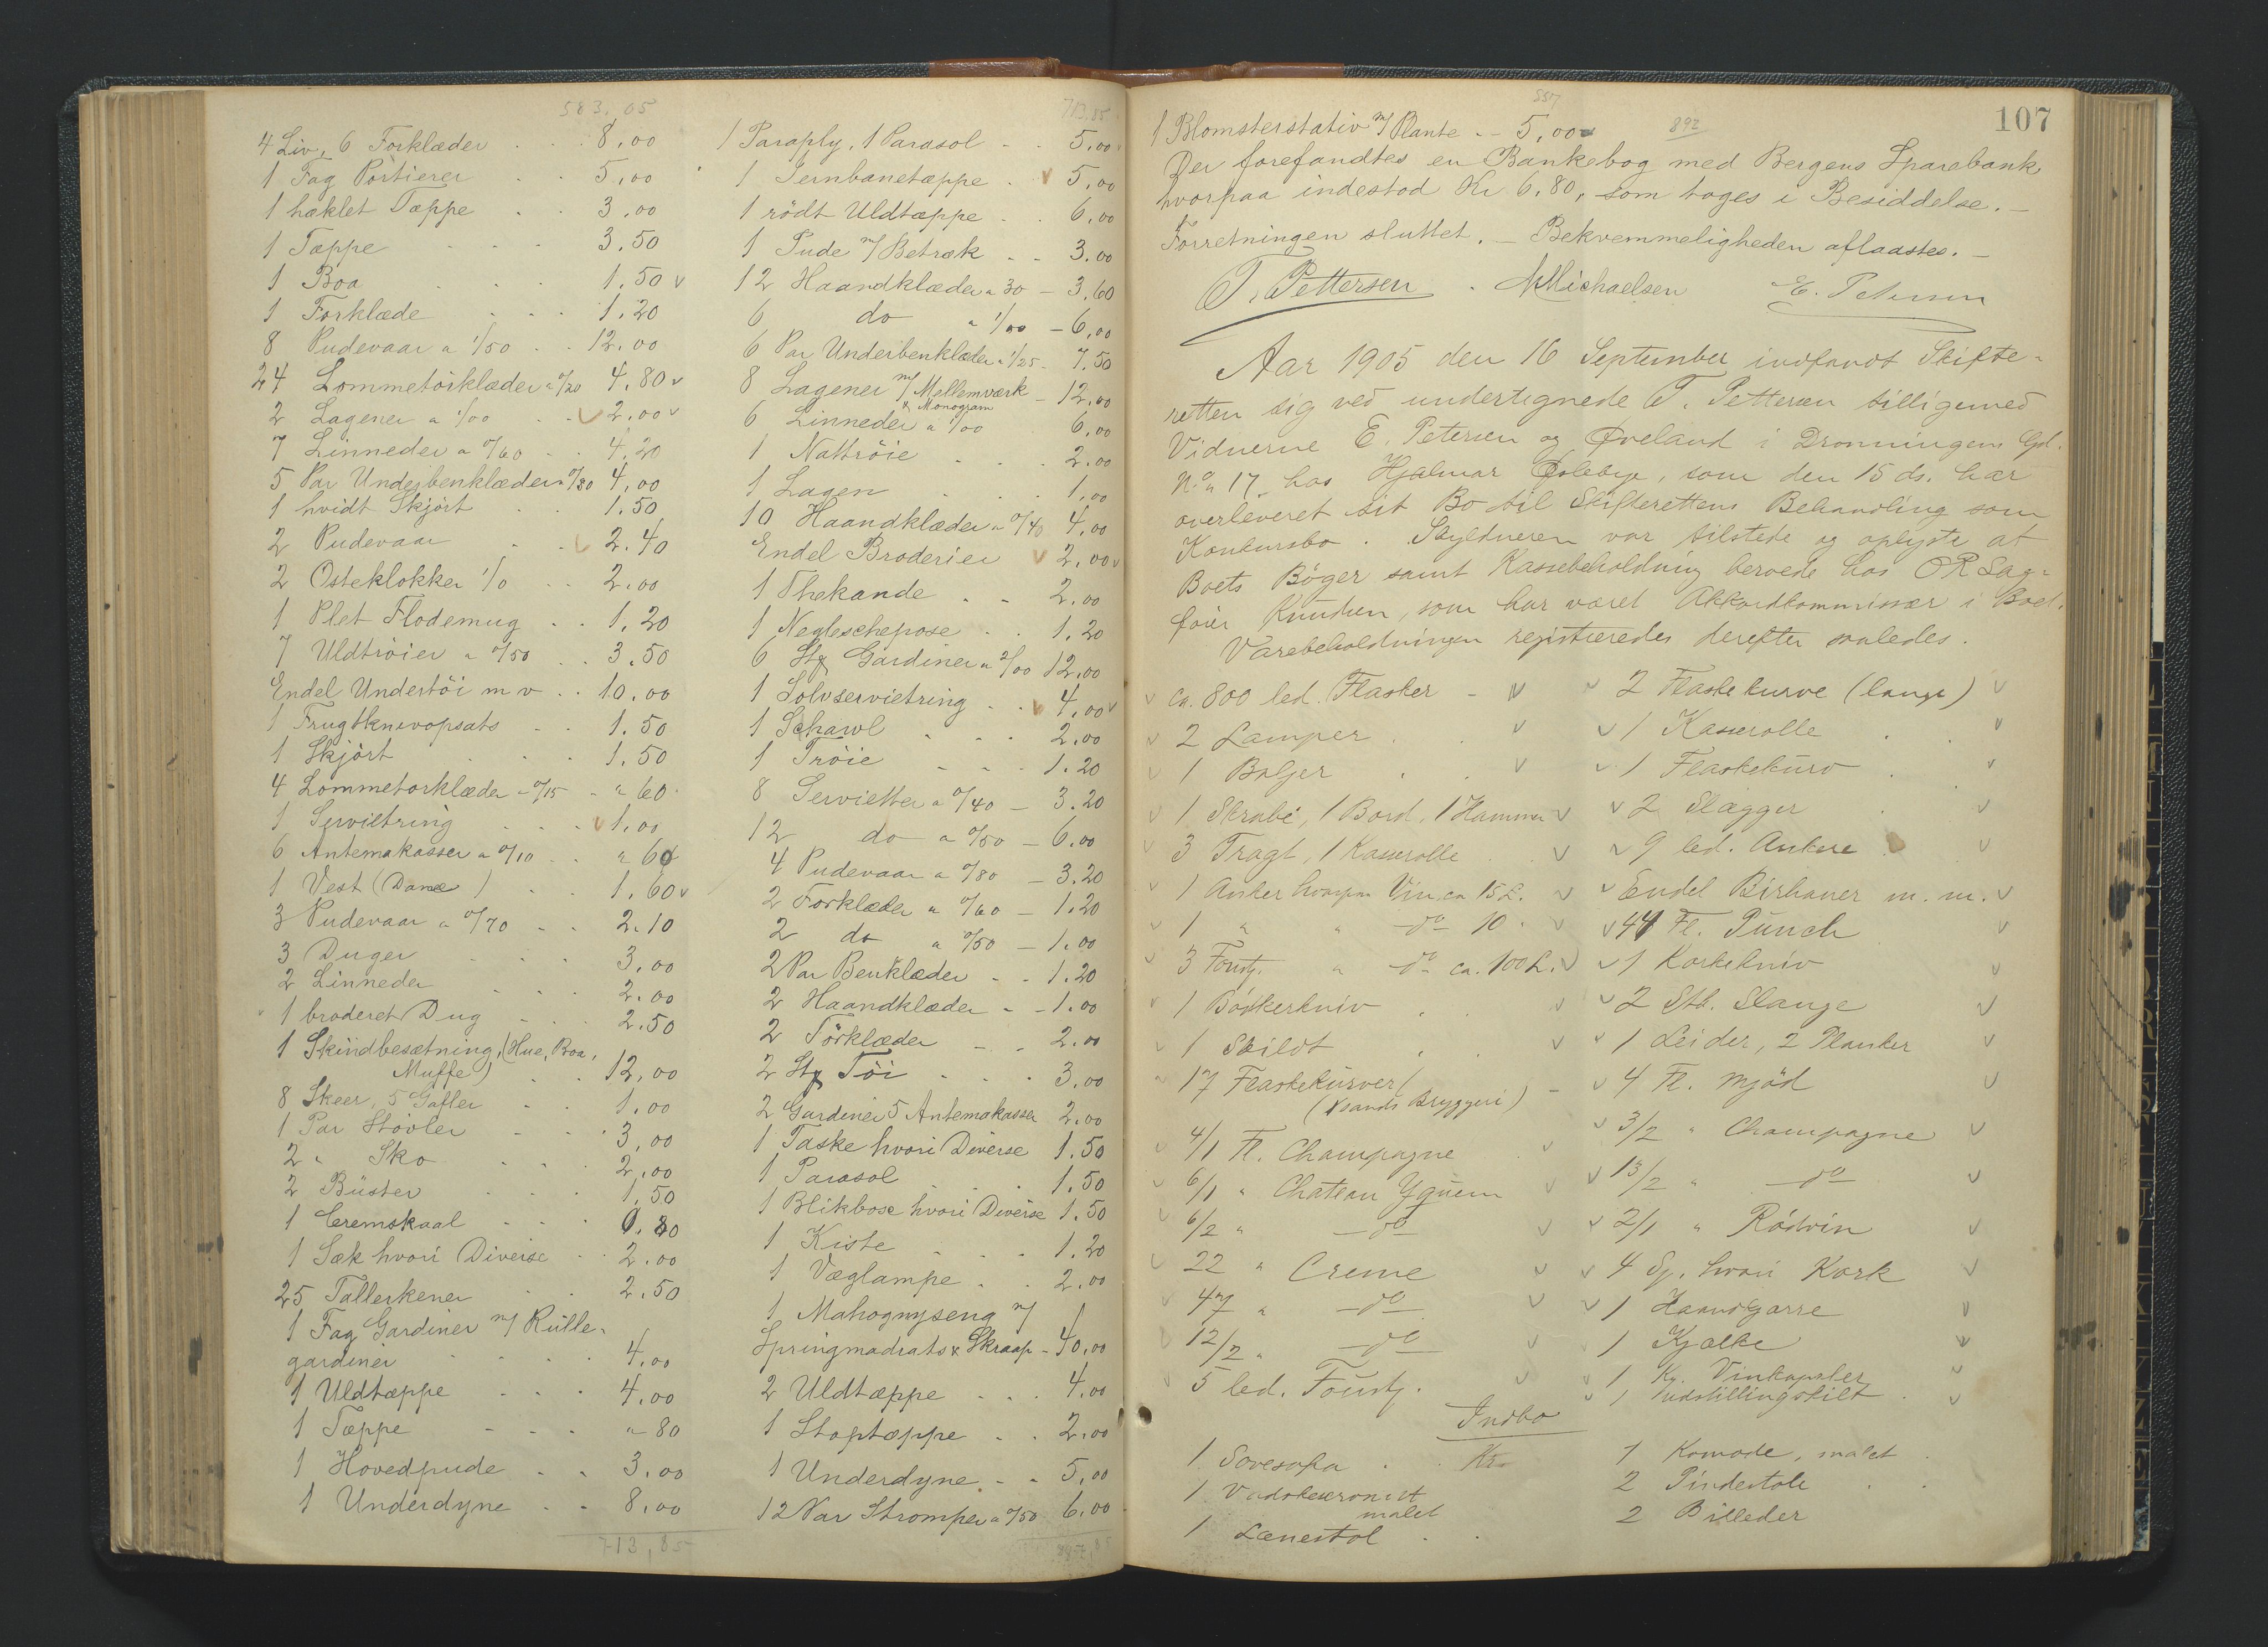 583,05
4 Liv, 6 Forklæder . . . 8,00
1 Fag Portierer . . 5,00
1 hæklet Tæppe . . 3,00
1 Tæppe . . . 3.50
1 Boa . . . 1.50 v
1 Forklæde . . . 1.20
8 Pudevaar a 1/50 . . 12.00
24 Lommetörklæder a 0/20 4.80 v
2 Lagener a 1/00 . v 2.00 v
7 Linneder a 0/60 . . 4.20
5 Par Underbenklæder a 0/80 4,00
1 hvidt Skjört . . 1.50
2 Pudevaar . . v 2.40
2 Osteklokker 1/0 . . 2.00
1 Plet Flödemug . . 1.20
7 Uldtröier a 0/50 . . 3.50
Endel Undertöi m v . . 10.00
1 Frugtknivopsats . . 1.50
1 Skjört . . . 1.50
4 Lommetorklæder a 0/15 - " 60
1 Serviettring . . . v 1.00
6 Antemakasser a 0/10 . . " 60
1 Vest (Dame) . . 1.60 v
3 Pudevaar a 0/70 . . 2.10
3 Duger . . . 3,00
2 Linneder . . . 2.00
1 broderet Dug . . 2.50
1 Skindbesætning, (Hue, Boa,
Muffe) . . 12,00
8 Skeer, 5 Gafler . . 1.00
1 Par Stövler . . 3,00
2 " Sko . . . 2,00
2 Büster . . . 1,50
1 Cremskaal . . . 0.80
1 Sæk hvori Diverse . . 2.00
25 Tallerkener . . 2.50
1 Fag Gardiner m/ Rülle-
gardiner . . . . 4,00
1 Uldtæppe . . . 4.00
1 Tæppe - - . " 80
1 Hovedpude . . 3.00
1 Underdyne . . 8,00
713,85
713,85
1 Paraply, 1 Parasol - . 5,00
1 Jernbanetæppe . v 5,00
1 rödt Uldtæppe . . 6,00
1 Pude m/ Betræk . - 3.00
12 Haandklæder a 30 - 3,60
6 do a 1/00 - 6,00
6 Par Underbenklæder a 1/25 - 7.50
8 Lagener m/ Mellemværk - 12,00
& Monogram
6 Linneder a 1/00 6,00
1 Nattröie . . . 2.00
1 Lagen . . . 1,00
10 Haandklæder a 0/40 4,00
Endel Broderier v 2,00 v
1 Thekande . - 2,00
1 Negleschepose . . 1.20
6 Stk Gardiner a 2/00 12,00
1 Sölvserviettring . . v 4,00 v
1 Schawl . . . 2,00
1 Tröie - - . 1.20
8 Servietter a 0/40 - 3.20
12 do a 0/50 - 6.00
4 Pudevaar a 0/80 - 3.20
2 Forklæder a 0/60 - 1.20
2 do a 0/50 - 1.00
2 Par Benklæder . . 1.20
2 Haandklæder - - 1.00
2 Törklæder - . 2.00
2 Stk Töi . . . 3,00
2 Gardiner 5 Antemakasser 2.00
1 Taske hvori Diverse 1.50
1 Parasol . . . 1.50
1 Blikboxe hvori Diverse 1.50
1 Kiste . . . 1.20
1 Væglampe . . 2,00
1 Mahognyseng m/
Springmadrats & Skraap - 40,00
2 Uldtæppe . . . 4.00
1 Stoptæppe . . 2.00
1 Underdyne . . 5,00
12 Par Strömper a 0/50 6.00
107
1 Blomsterstativ m/ Plante . - 5,00 892
Der forefandtes en Bankebog med Bergens Sparebank
hvorpaa indestod Kr 6.80, som toges i Besiddelse. -
Forretningen sluttet. - Bekvemmeligheden aflaastes. -
T. Pettersen . Michaelsen E. Petersen
Aar 1905 den 16 September indfandt Skifte-
retten sig ved undertegnede T. Pettersen tilligemed
Vidnerne E. Petersen og Öveland i Dronningens Gd.
No. 17 hos Hjalmar Oslebye, som den 15 ds. har
overleveret sit Bo til Skifterettens Behandling som
Konkursbo. Skyldneren var tilstede og oplyste at
Boets Böger samt Kassebeholdning beroede hos OR Sag-
förer Knudsen, som har været Akkordkommissær i Boet.
Varebeholdningen registreredes derefter saaledes.
v ca. 800 led. Flasker - v
v 2 Lamper . . v
v 1 Baljer . . v
v 1 Skrabe, 1 Bord, 1 Hammer v
v 3 Tragt, 1 Kasserolle . v
v 1 Anker hvorpaa Vin ca 15 L. v
v 1 " " do 10 " v
v 3 Foustg. " do ca. 100 L. v
v 1 Bödkerkniv . v
v 1 Skildt . . v
17 Flaskekurver (
(Xsands Bryggeri) -
v 4/1 Fl. Champagne . v
v 6/1 " Chateau Yquem v
v 6/2 " do v
v 22 " Creme v
v 47 " do v
v 12/2 " do v
v 5 led. Foustg. v
v 2 Flaskekurve (lange) v
v 1 Kasserolle . . v
v 1 Flaskekurv . v
v 2 Slægger . v
v 9 led. Ankere v
v Endel Birhaner m. m. v
v 44 Fl. Punch v
v 1 Korkekniv v
v 2 Stk. Slange v
v 1 Leider, 2 Planker v
v 4 Fl. Mjöd v
v 3/2 " Champagne v
v 13/2 " do v
v 2/1 " Rödvin v
v 4 Sp. hvori Kork v
v 1 Haandkjærre v
1 Kjælke v
v 1 Kg. Vinkapsler v
v 1 Udstillingskilt . v
Indbo
1 Sovesofa . . Kr.
1 Vadskeservant
malet
1 Lænestol . .
1 Komode, malet .
2 Pindestole . .
2 Billeder